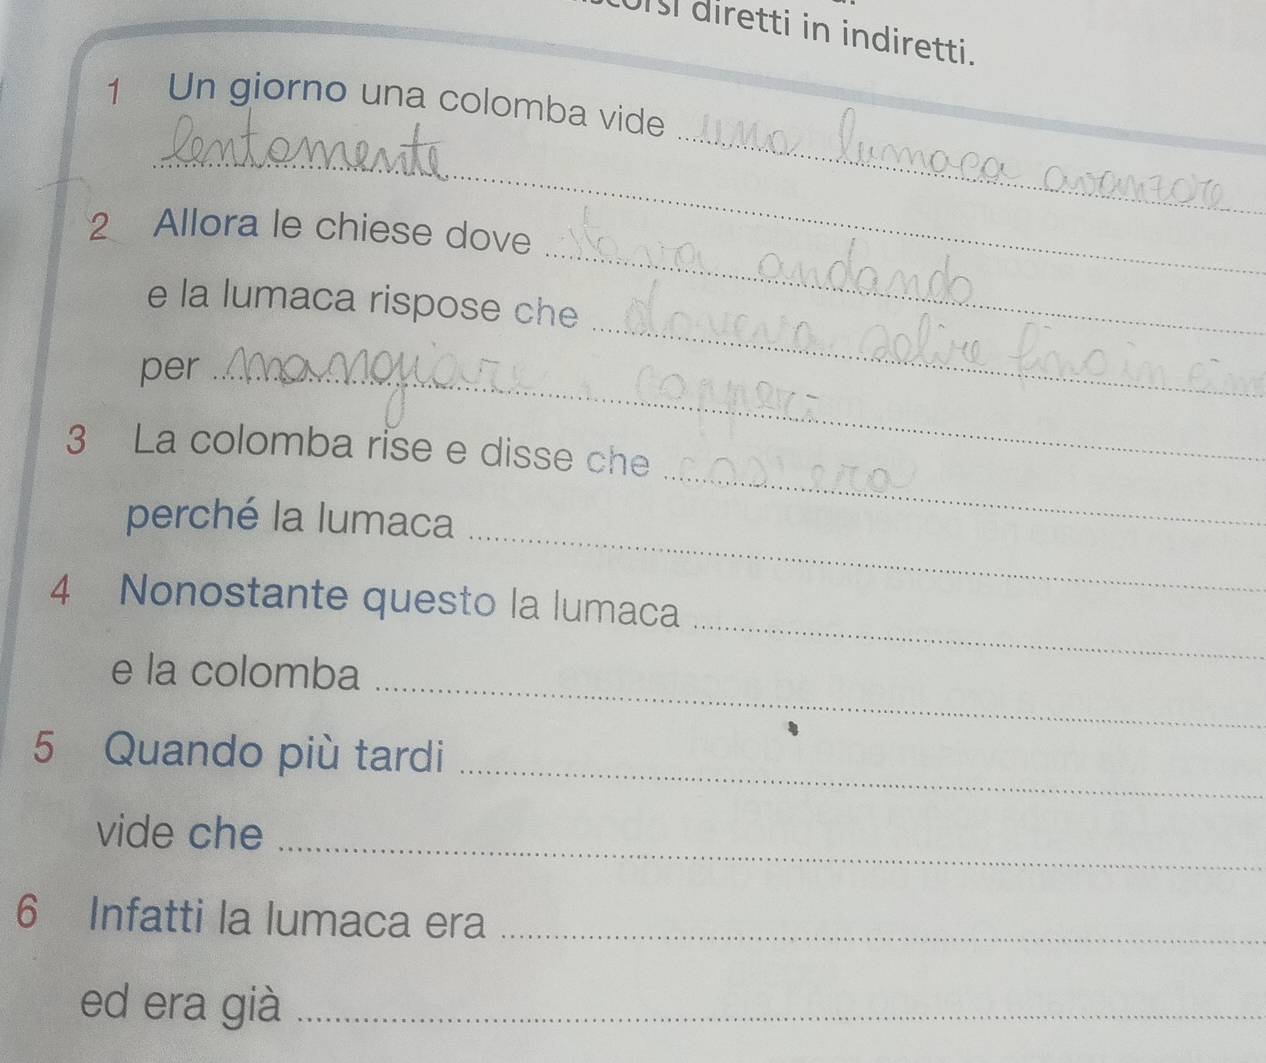 diretti in indiretti.
1 Un giorno una colomba vide una lumaca avanzare
lentamente
2 Allora le chiese dove stava andando
e la lumaca rispose che doveva salire fino in cim
per mangiare i capperi
3 La colomba rise e disse che così era
perché la lumaca
4 Nonostante questo la lumaca
e la colomba
5 Quando più tardi
vide che
6 Infatti la lumaca era
ed era già